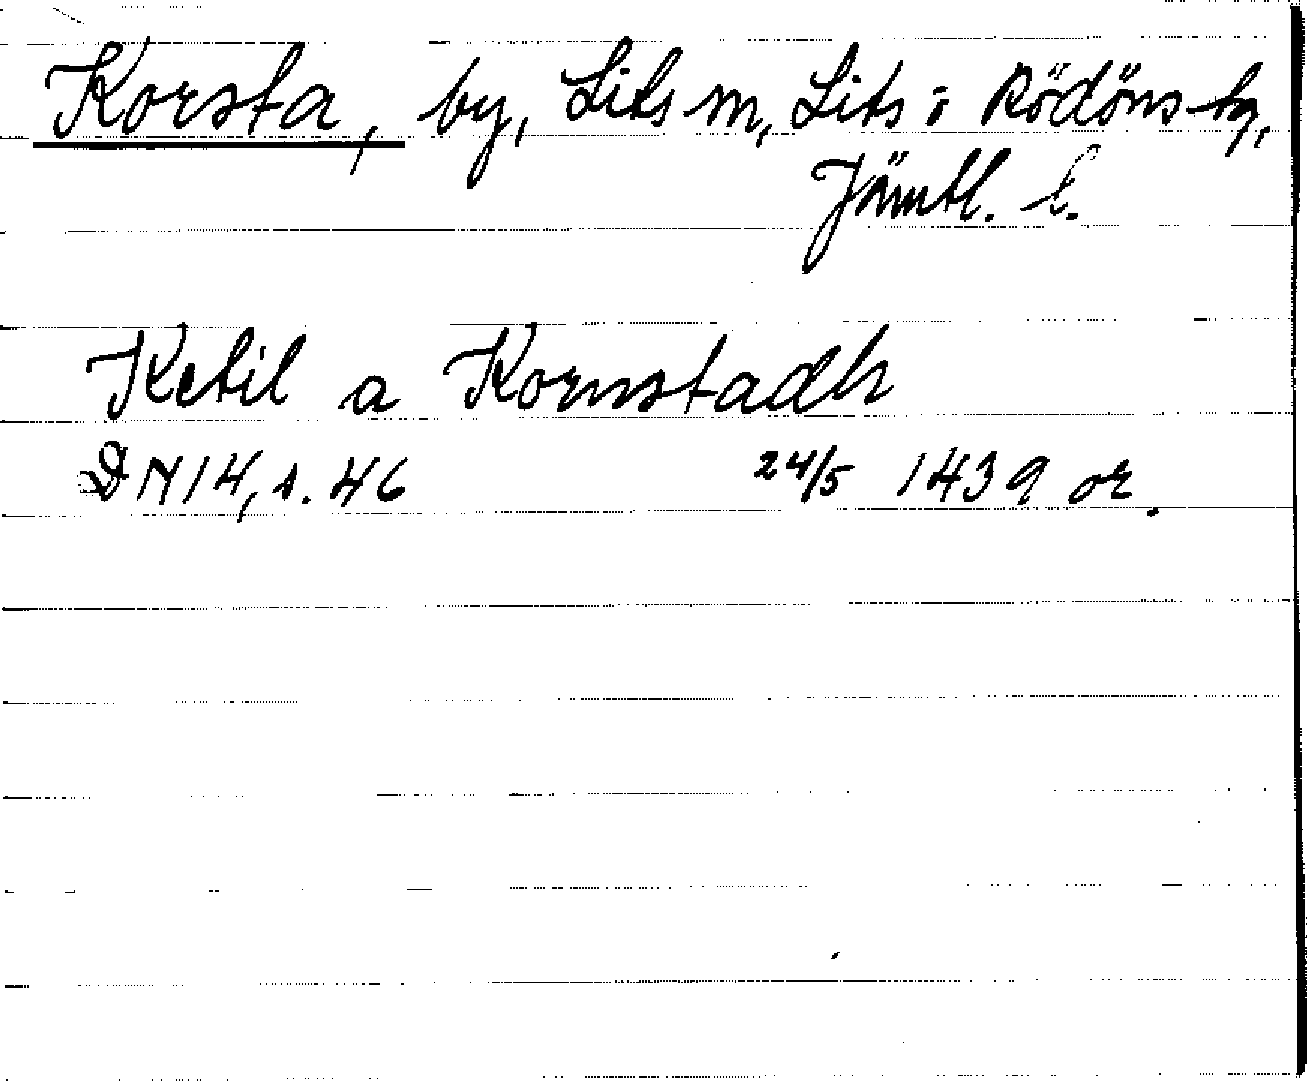 Korsta, by, Lits sn, Lits o Rödöns tg,
Jämtl. l.
Ketil a Kornstadh
DN 14, s. 46 24/5 1439 or.